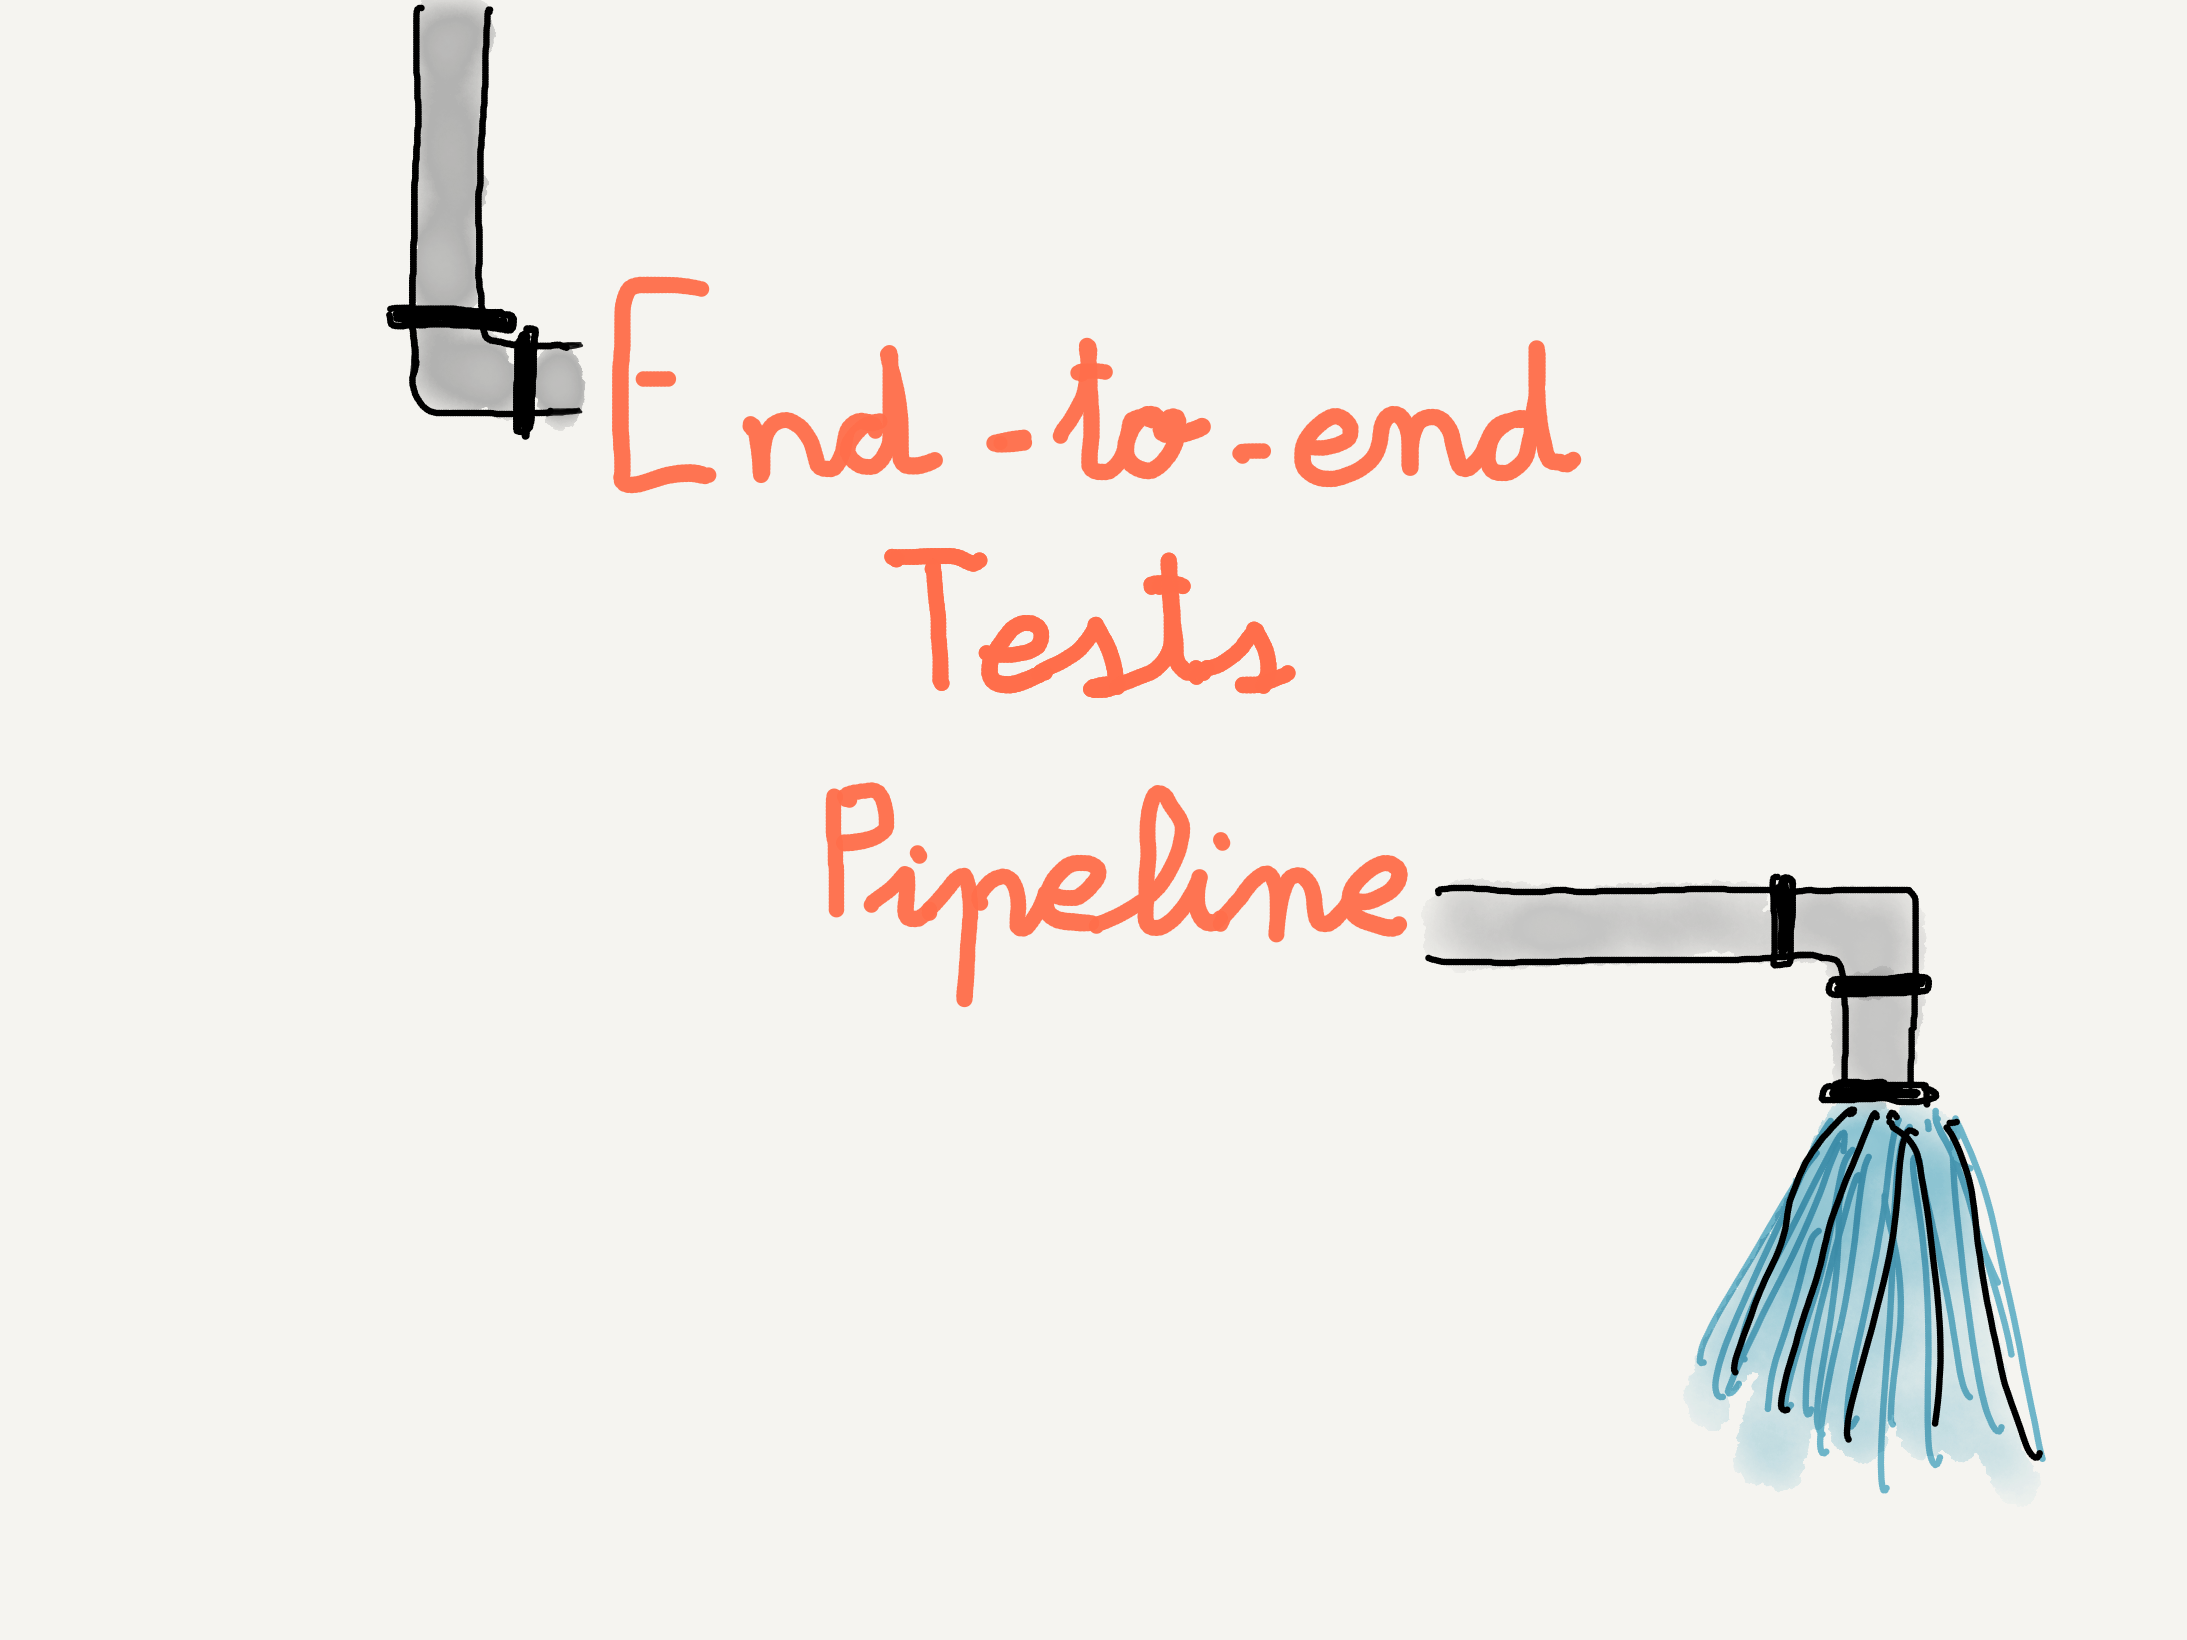 End-to-end
Tests
Pipeline